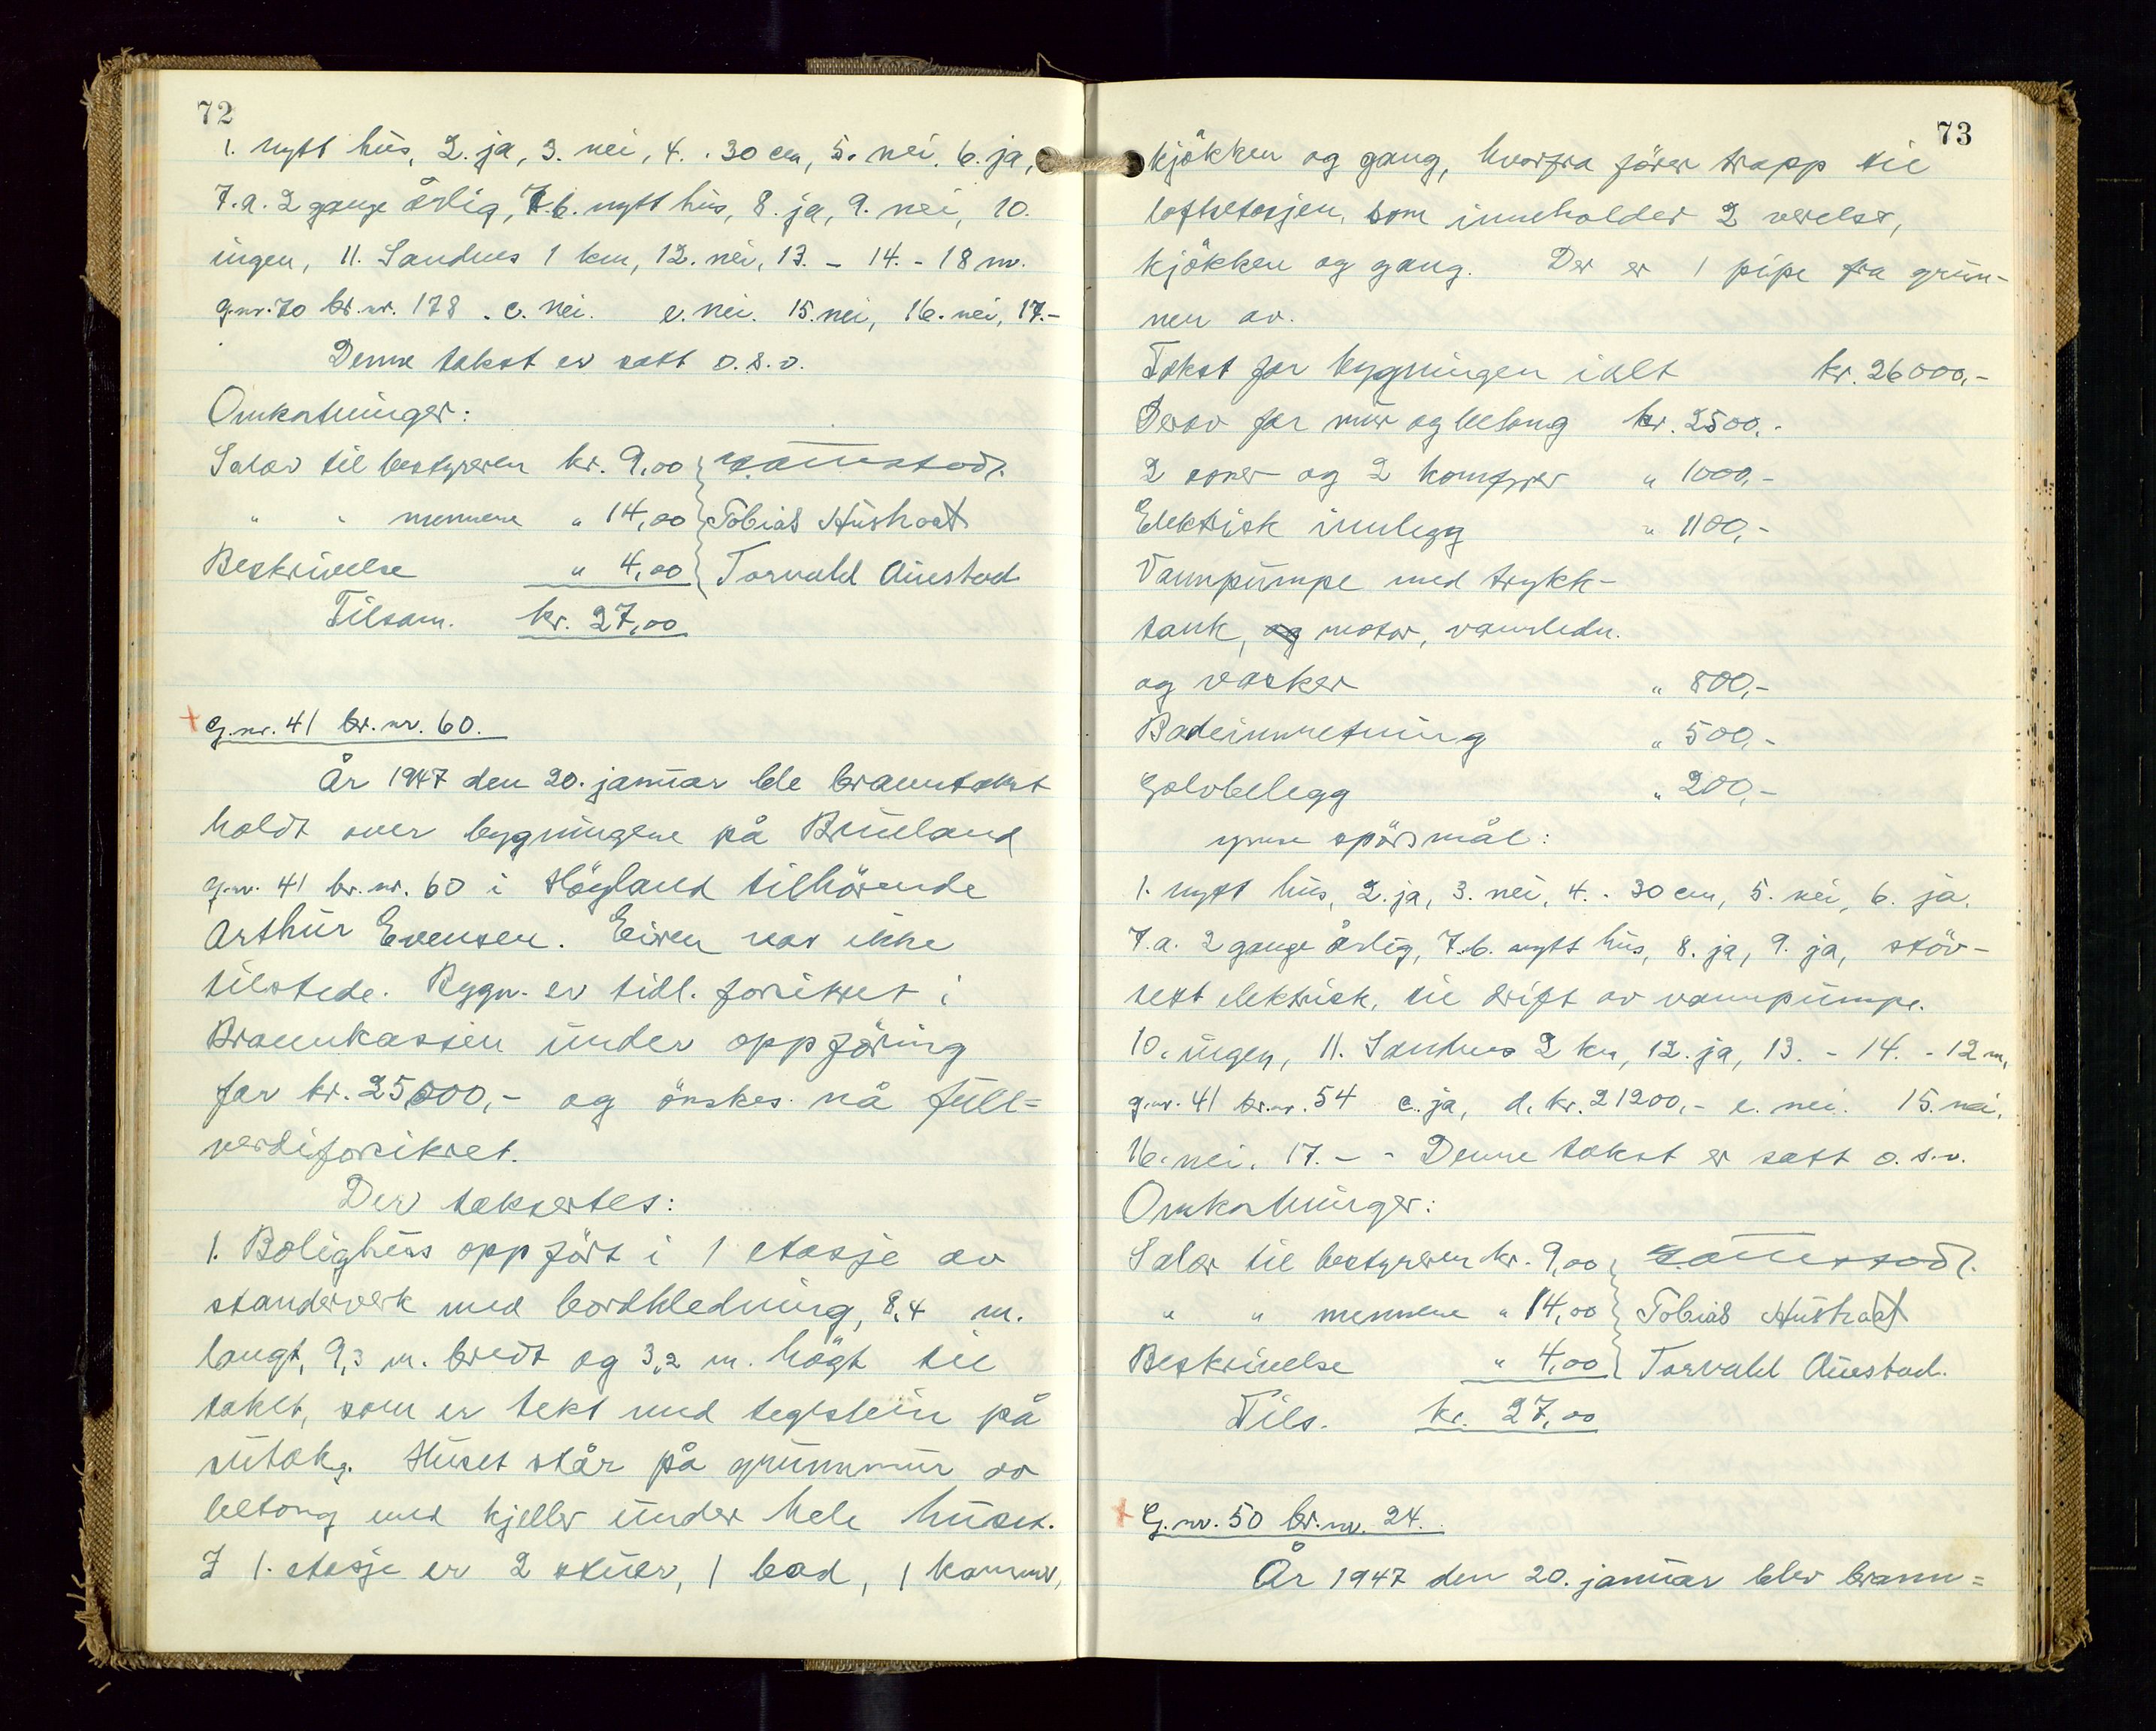 72
1. nytt hus, 2. ja, 3. nei, 4. . 30 cm, 5. nei. 6. ja,
7.a. 2 gange årlig, 7.b. nytt hus, 8. ja, 9. nei, 10.
ingen, 11. Sandnes 1 km, 12. nei, 13. – 14. – 18 m.
g.nr. 70 br.nr. 178 . c. nei. e. nei. 15. nei, 16. nei, 17.–
Denne takst er satt o.s.v.
Omkostninger:
Salær til bestyreren kr. 9,00
" " mennene " 14,00 Tobias Austraat
Beskrivelse " 4,00 Torvald Auestad
Tilsam. kr. 27,00
G.nr. 41 br.nr. 60.
År 1947 den 20. januar ble branntakst
holdt over bygningene på Bruland
g.nr. 41 br.nr. 60 i Höyland tilhörende
Arthur Evensen. Eiren var ikke
tilstede. Bygn. er tidl. forsikret i
Brannkassen under oppföring
for kr. 25000,- og önskes nå full=
verdiforsikret.
Der taksertes:
1. Bolighus oppfört i 1 etasje av
standerverk med bordkledning, 8,4 m.
langt, 9,3 m. bredt og 3,2 m. högt til
taket, som er tekt med teglstein på
sutak. Huset står på grunnmur av
betong med kjeller under hele huset.
I 1. etasje er 2 stuer, 1 bad, 1 kammer,
73
kjökken og gang, hvorfra förer trapp til
loftsetasjen, som inneholder 2 værelser,
kjökken og gang. Der er 1 pipe fra grun-
nen av.
Takst for bygningen ialt kr. 26000,-
Derav for mur og betong kr. 2500.-
2 ovner og 2 komfyrer " 1000,-
Elektrisk innlegg " 1100,-
Vannpumpe med trykk-
tank, og motor, vannledn.
og vasker " 800,-
Badeinnretning " 500,-
Golvbelegg " 200,-
ymse spörsmål:
1. nytt hus, 2. ja, 3. nei, 4. . 30 cm, 5. nei, 6. ja.
7.a. 2 gange årlig, 7.b. nytt hus, 8. ja, 9. ja, störr-
sett elektrisk, til drift av vannpumpe.
10. ingen, 11. Sandnes 2 km, 12. ja, 13. – 14. – 12 m,
g.nr. 41 br.nr. 54 c. ja, d. kr. 21200,- e. nei. 15. nei,
16. nei. 17. – - Denne takst er satt o.s.v.
Omkostninger:
Salær til bestyreren kr. 9,00
" " mennene " 14,00 Tobias Austraat
Beskrivelse " 4,00 Torvald Auestad.
Tils. kr. 27,00
G.nr. 50 br.nr. 24.
År 1947 den 20. januar blev brann=